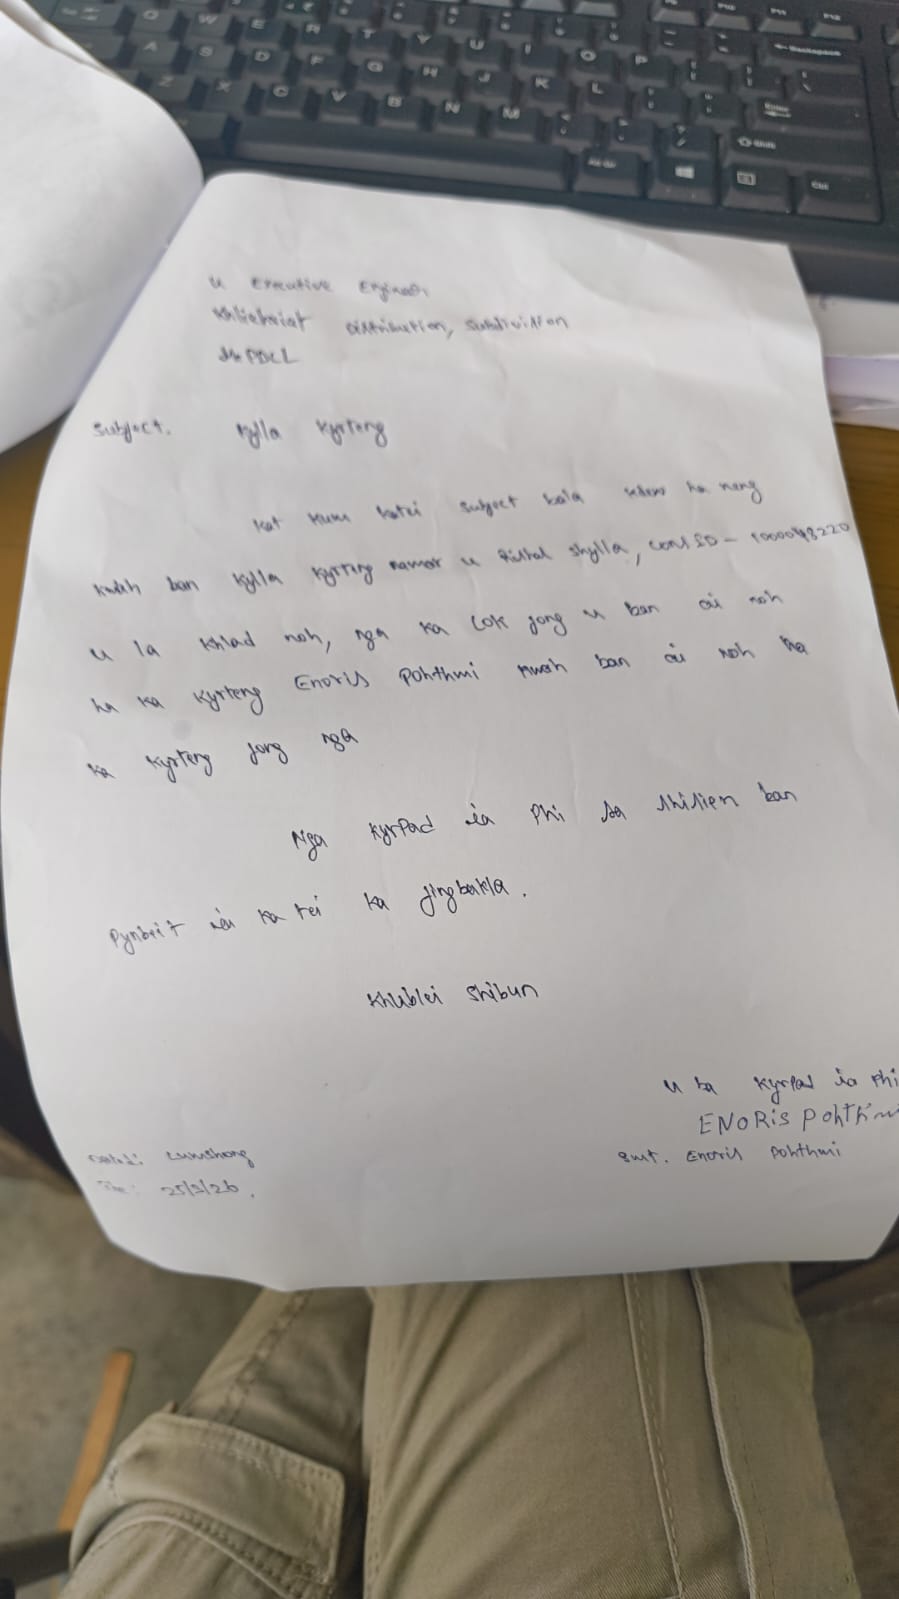 u Executive Engineer
Khliehriat Distribution, Subdivision
MePDCL
Subject. Kylla Kyrteng
Kat kum katei subject bala kdew ha neng
kwah ban kylla kyrteng namar u Shylla, Con ID - 1000048220
u la khlad noh, nga ka Lok jong u ban ai noh
ha ka kyrteng Enoris Pohthmi kwah ban ai noh ha
ka kyrteng jong nga
Nga kyrpad ia phi sa shisien ban
Pynbeit ia ka tei ka jingbakla.
Khublei shibun
u ba kyrpad ia phi
ENORis Pohthmi
Smt. Enoris Pohthmi
Dated: Lumshnong
The: 25/3/26.